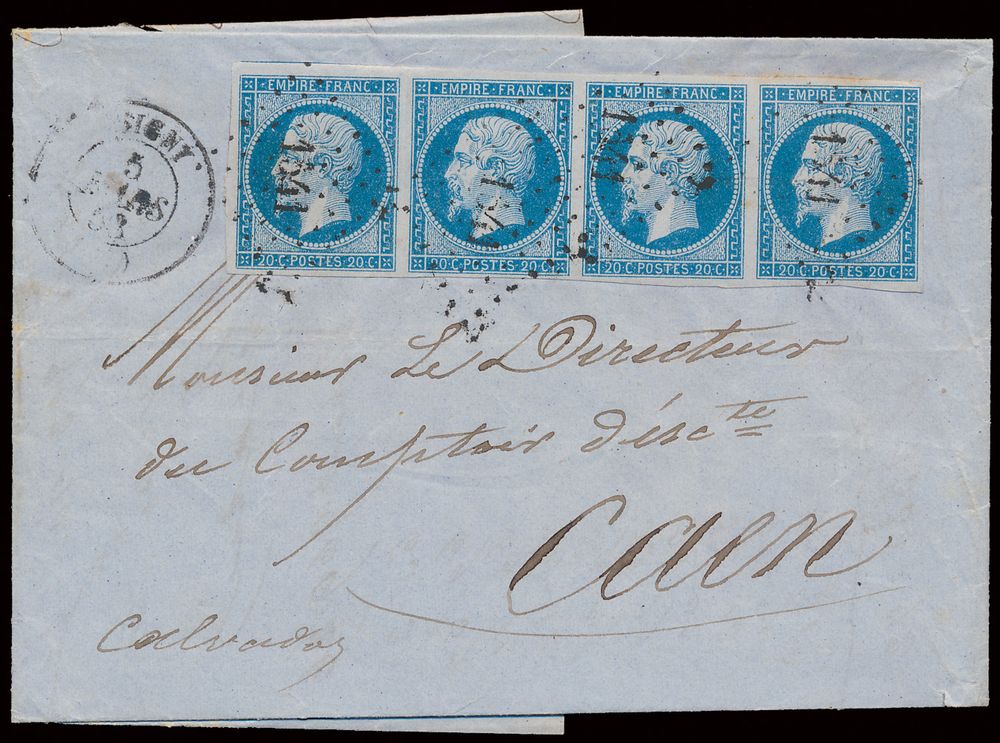 EMPIRE·FRANC
EMPIRE·FRANC
EMPIRE·FRANC
EMPIRE·FRANC
20·C·POSTES·20·C
20·C·POSTES·20·C
20·C·POSTES·20·C
20·C·POSTES·20·C
SIGNY
5
MARS
Monsieur Le Directeur
du Comptoir d'ésc^te
Caen
Calvados